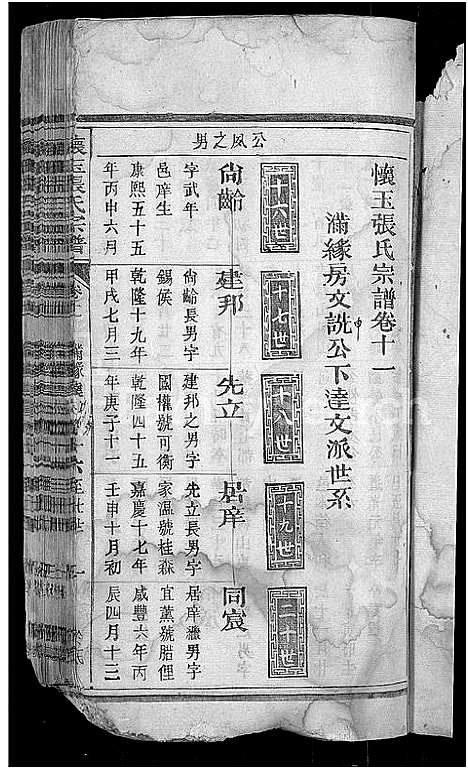 懷玉張氏宗譜卷十一
滿緣房文詵公下達文派世系
十六世
十七世
十八世
十九世
二十世
公風之男
尙齡
字武年
邑庠生
康熙五十五
年丙申六月
建邦
尙齡長男字
錫侯
乾隆十九年
甲戌七月三
先立
建邦之男字
國權號可衡
乾隆四十五
年庚子十一
居庠
先立長男字
家溫號桂森
嘉慶十七年
壬申十月初
同宸
居庠繼男字
宜薰號腊俚
咸豐六年丙
辰四月十三
懷玉張氏宗譜
卷十一